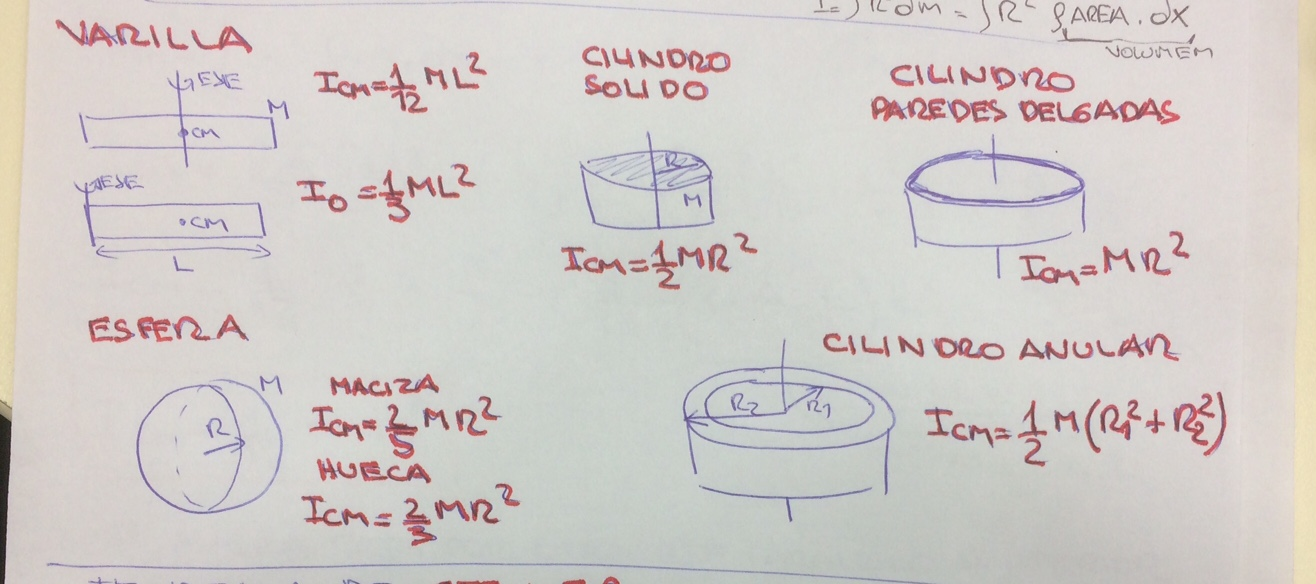 I = ∫R² dm = ∫R² ρ AREA . dx
VOLUMEM
VARILLA
EJE
M
CM
Icm = 1/12 ML²
EJE
CM
L
I₀ = 1/3 ML²
CILINDRO
SOLIDO
R
M
Icm = 1/2 MR²
CILINDRO
PAREDES DELGADAS
Icm = MR²
ESFERA
M
R
MACIZA
Icm = 2/5 MR²
HUECA
Icm = 2/3 MR²
CILINDRO ANULAR
R₂
R₁
Icm = 1/2 M(R₁² + R₂²)